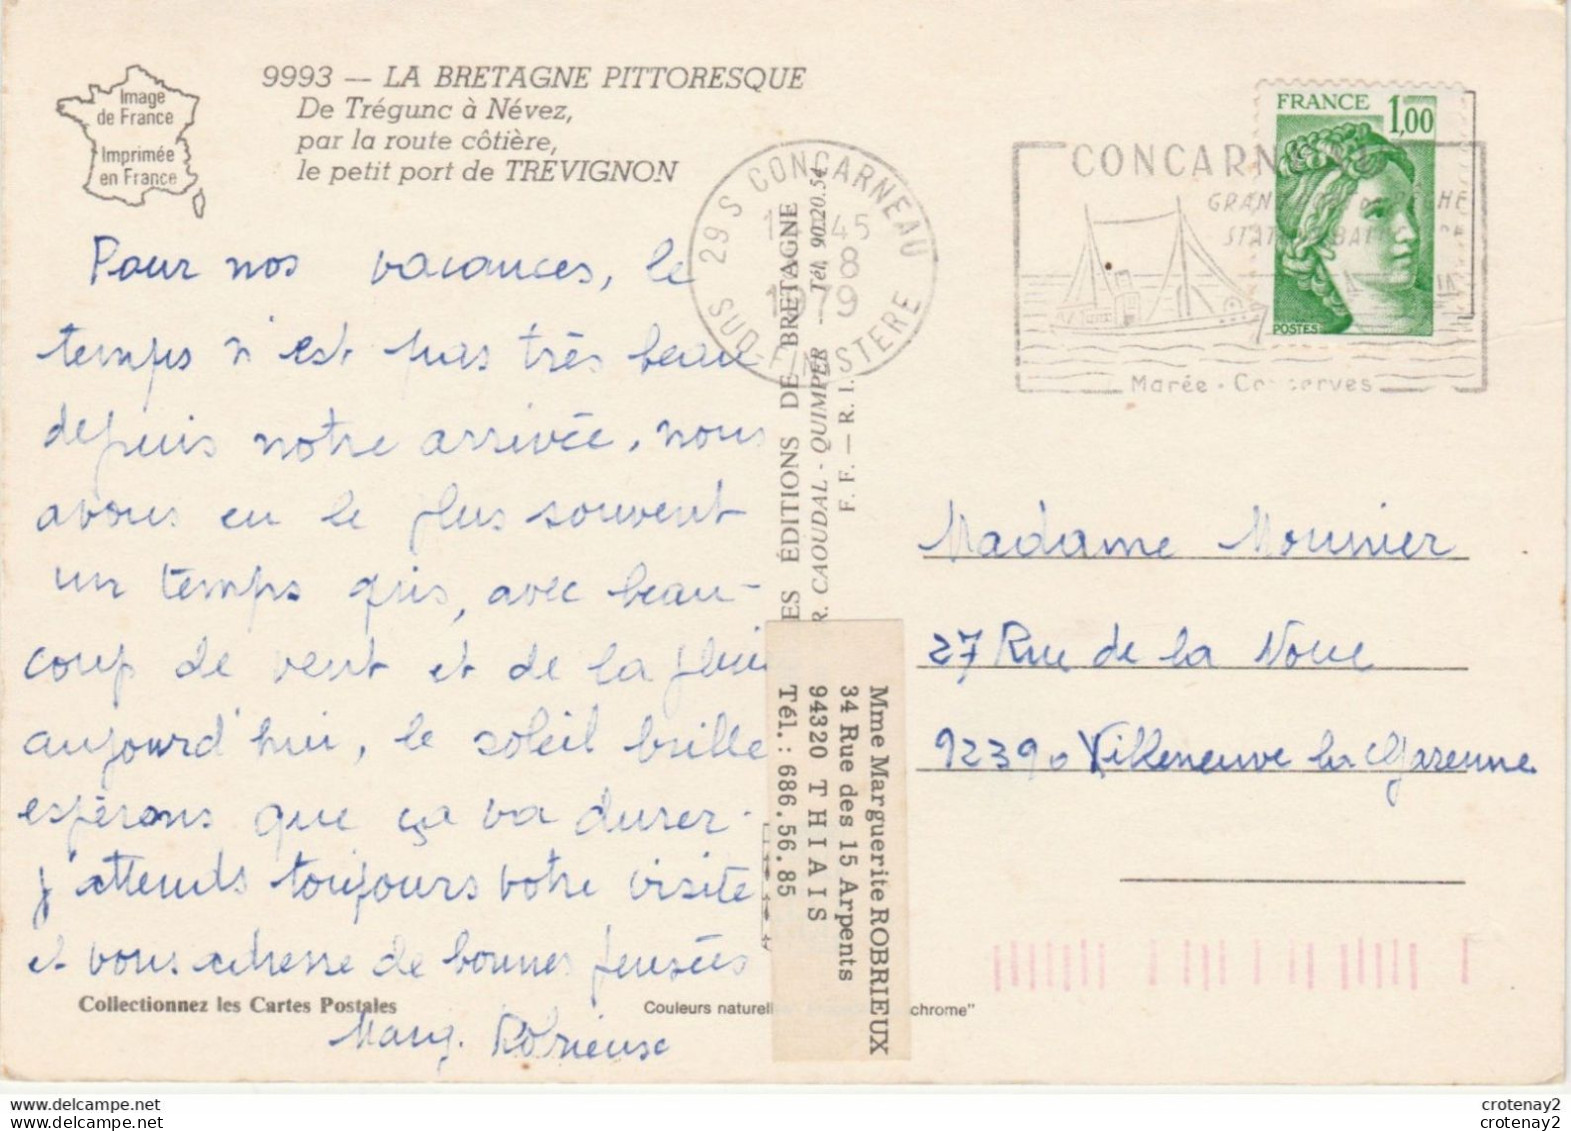 Image
de France
Imprimée
en France
9993 — LA BRETAGNE PITTORESQUE
De Trégunc à Névez,
par la route côtière,
le petit port de TREVIGNON
Pour nos vacances, le
temps n'est pas très beau
depuis notre arrivée, nous
avons eu le plus souvent
un temps gris, avec beau-
coup de vent et de la pluie
aujourd'hui, le soleil brille
espérons que ça va durer.
j'attends toujours votre visite
et vous adresse de bonnes pensées
Marg. Robrieux
Collectionnez les Cartes Postales
Couleurs naturell
chrome"
29 S CONCARNEAU
45
8
1979
SUD-FINISTERE
ES ÉDITIONS DE BRETAGNE
R. CAOUDAL - QUIMPER - Tél. 90.20.54
F. F. — R. I.
Mme Marguerite ROBRIEUX
34 Rue des 15 Arpents
94320 THIAIS
Tél. : 686.56.85
FRANCE 1,00
POSTES
CONCARN
Marée - Conserves
Madame Mounier
27 Rue de la Noue
92390 Villeneuve la Garenne
crotenay2
crotenay2